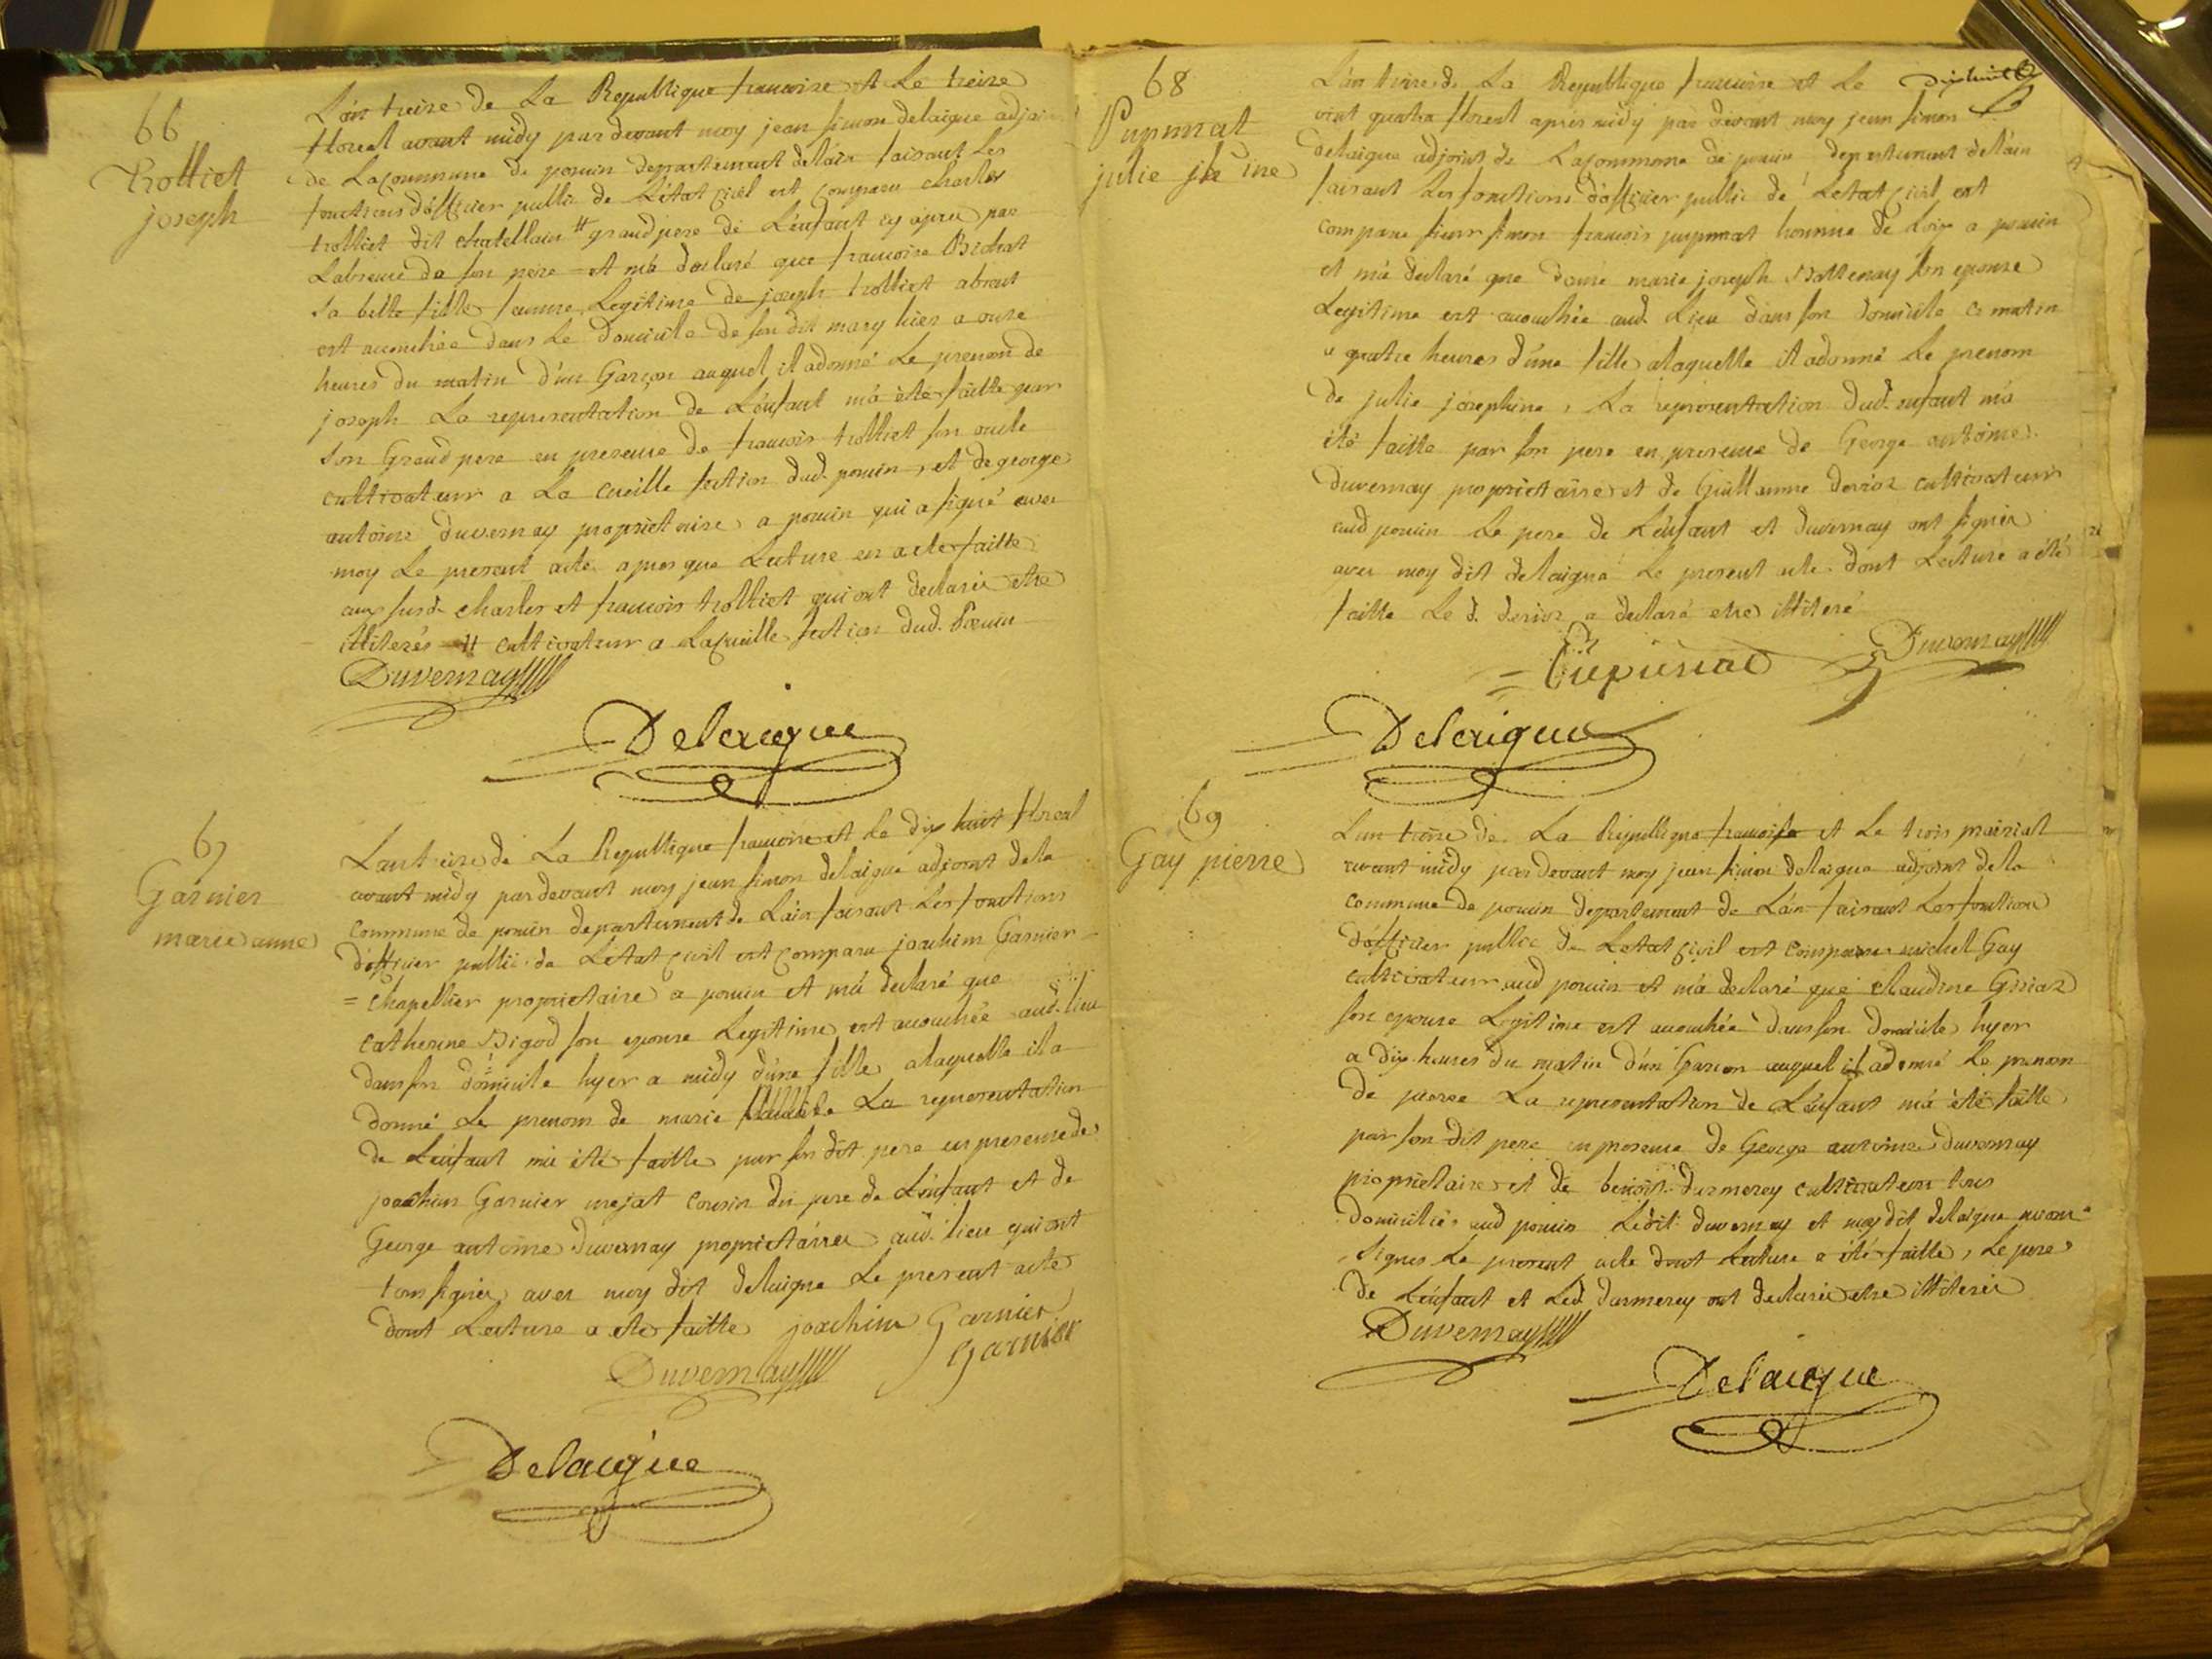 66
trolliet
joseph
L'an treize de La Republique francoise et Le treize
floreal avant midy par devant moy jean simon delaigue adjoint
de Lacommune de pouin departement delain faisant Les
fonctions d'officier public de Létat civil est comparu charles
trolliet dit chatellain # grand pere de L'enfant cy apres par
Labsence de son pere et m'a declaré que francoise Bichat
sa belle fille femme Legitime de joseph trolliet absent
est accouchée dans Le domicile de son dit mary hier a onze
heures du matin d'un Garçon auquel il adonné Le prenom de
joseph La representation de L'enfant m'a été faitte par
son Grand pere en presence de francois trolliet son oncle
cultivateur a La cueille section dud. pouin, et de george
antoine duvernay proprietaire a pouin qui a signé avec
moy Le present acte apres que Lecture en a ete faitte
aux susd. charles et francois trolliet qui ont declarés etre
illiterés # cultivateur a Lacueille section dud. Pouin
Duvernay
Delaigue
67
Garnier
marie anne
L'an treize de La Republique francoise et Le dix huit floreal
avant midy par devant moy jean simon delaigue adjoint dela
commune de pouin departement de L'ain faisant Les fonctions
d'officier public de Létat civil est comparu joachim Garnier
= chapellier proprietaire a pouin et m'a declaré que
catherine Bigod son epouse Legitime est accouchée aud. lieu
dans son domicile hyer a midy d'une fille alaquelle il a
donné Le prenom de marie La representation
de L'enfant m'a été faitte par son dit pere en presence de
joachim Garnier mejat cousin du pere de L'enfant et de
George antoine duvernay proprietaires aud. lieu qui ont
tous signés avec moy dit delaigue Le present acte
dont Lecture a ete faitte joachim Garnier
Garnier
Duvernay
Delaigue
68
Pupunat
julie jh ine
L'an treize de La Republique francoise et Le
vint quatre floreal apres midy par devant moy jean simon
delaigue adjoint de Lacommune de pouin departement delain
faisant Les fonctions d'officier public de Letat civil est
comparu sieur simon francois pupunat homme de Loix a pouin
et m'a declaré que dame marie joseph Battenay son epouse
Legitime est accouchée aud. Lieu dans son domicile ce matin
a quatre heures d'une fille alaquelle il adonné Le prenom
de julie josephine, La representation dud. enfant m'a
été faitte par son pere en presence de George antoine
duvernay proprietaire et de Guillaume derioz cultivateur
aud pouin Le pere de L'enfant et duvernay ont signés
avec moy dit delaigue Le present acte dont Lecture a été
faitte Le d. derioz a declaré etre illiteré
Pupunat Duvernay
Delaigue
69
Gay pierre
L'an treize de La Republique francoise et Le trois prairial
avant midy par devant moy jean simon delaigue adjoint dela
commune de pouin departement de L'ain faisant Les fonction
d'officier public de Letat civil est comparu michel Gay
cultivateur aud pouin et m'a declaré que claudine Griaz
son epouse Legitime est accouchée dans son domicile hyer
a dix heures du matin d'un Garcon auquel il adonné Le prenom
de pierre La representation de L'enfant m'a été faitte
par son dit pere en presence de George antoine duvernay
proprietaire et de benoit durmerey cultivateur tous
domiciliés aud pouin Ledit duvernay et moy dit delaigue avons
signés Le present acte dont Lecture a été faitte, Le pere
de L'enfant et Led. durmerey ont declarés etre illiterés
Duvernay
Delaigue